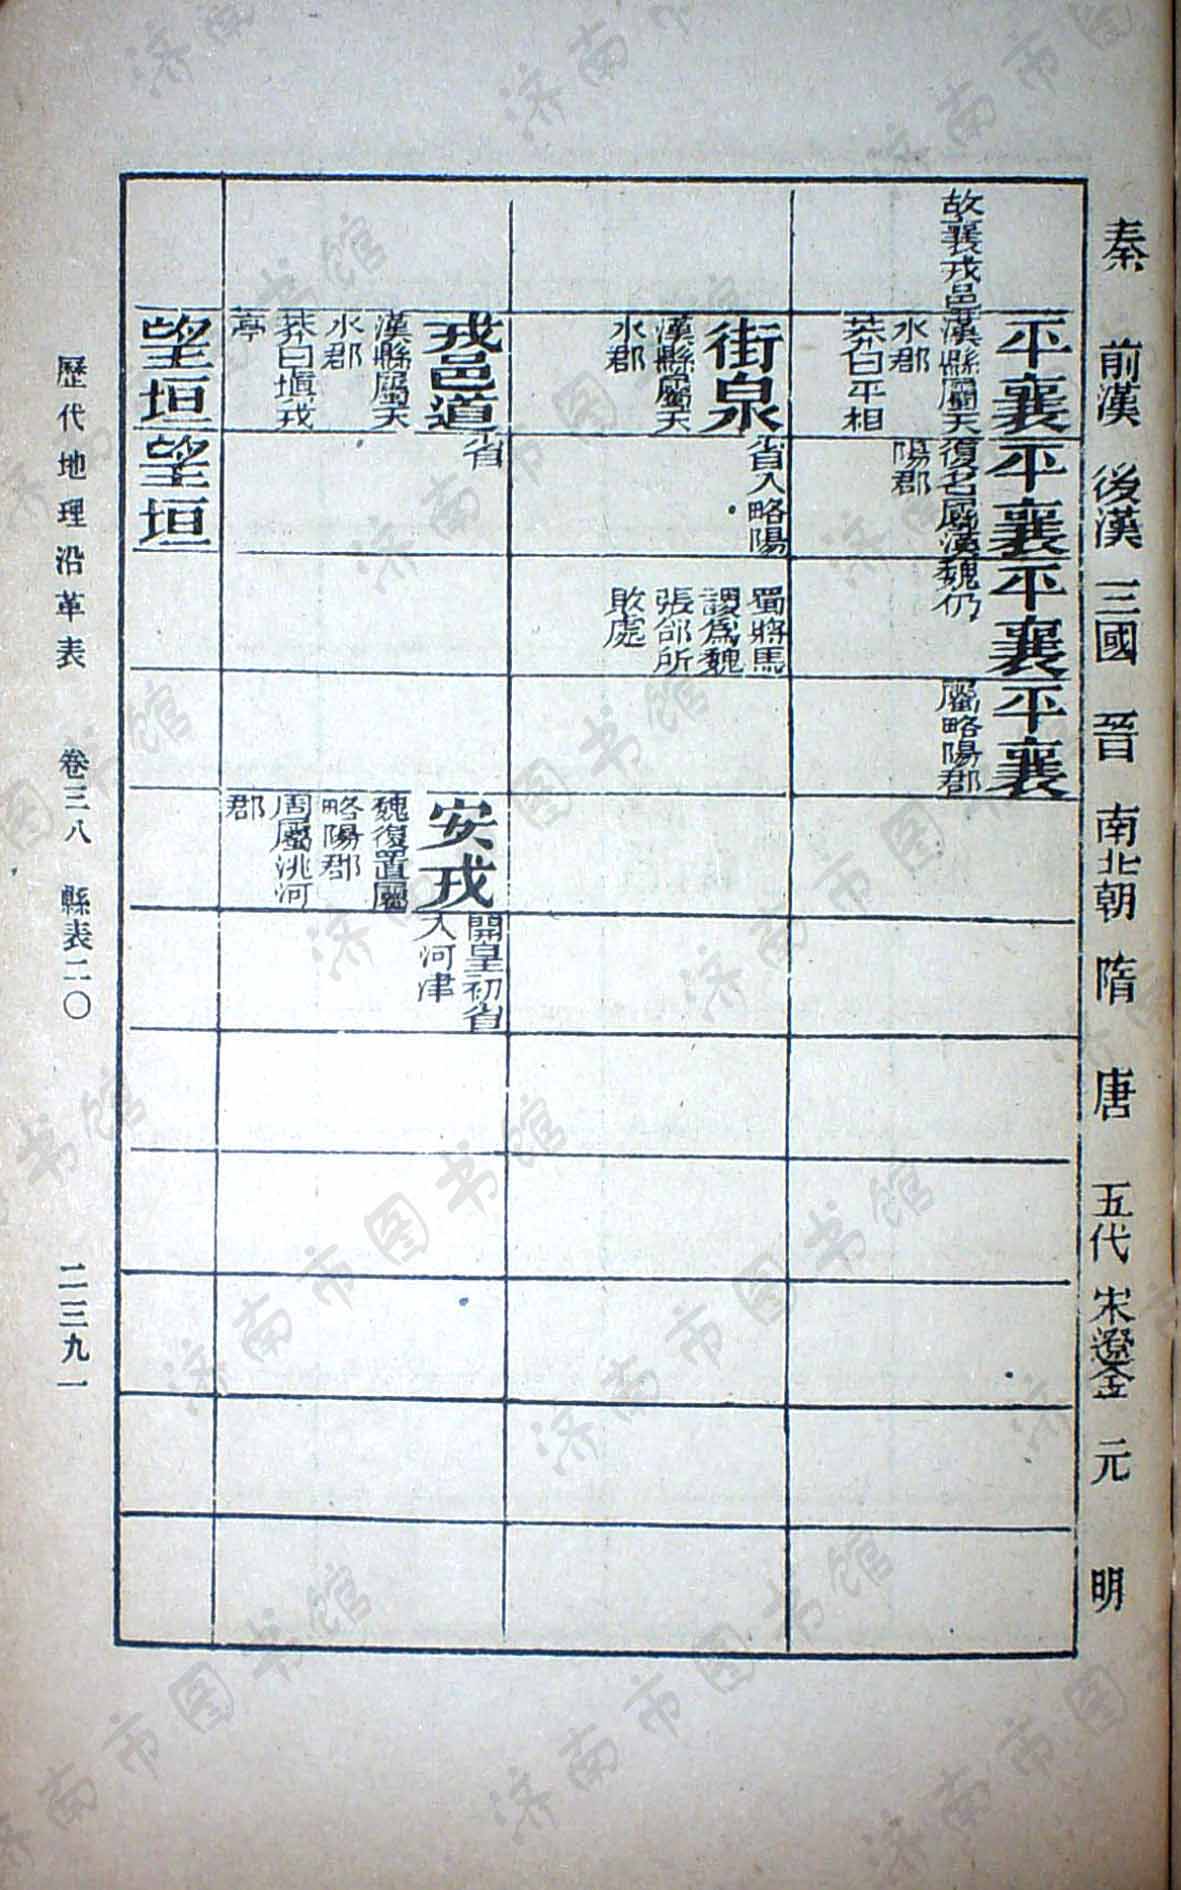 秦 前漢 後漢 三國 晉 南北朝 隋 唐 五代 宋遼金 元 明
平襄 平襄 平襄 平襄
故襄戎邑 漢縣屬天 復名屬漢 魏仍 屬略陽郡
水郡 陽郡
莽曰平相
街泉 省入略陽 蜀將馬
漢縣屬天 謖爲魏
水郡 張郃所
敗處
戎邑道 省 安戎 開皇初省
入河津
漢縣屬天 魏復置屬
水郡 略陽郡
莽曰填戎 周屬洮河
亭 郡
望垣 望垣
歷代地理沿革表 卷三八 縣表二〇 二三九一
济南市图书馆